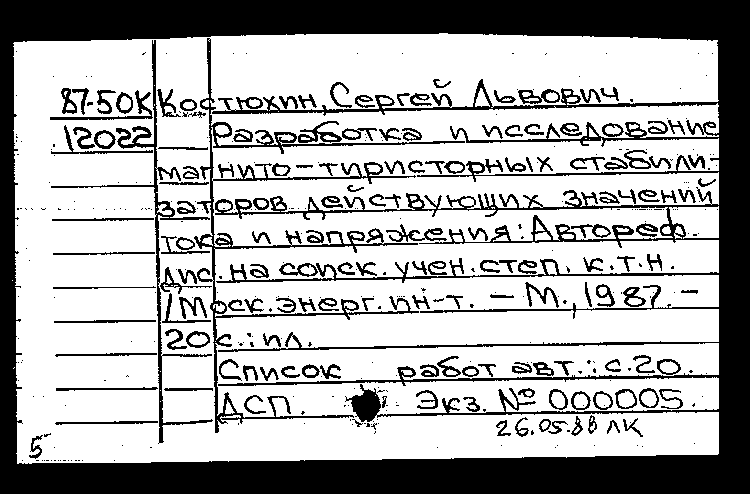 87-50К Костюхин, Сергей Львович.
12022 Разработка и исследование
магнито-тиристорных стабили-
заторов действующих значений
тока и напряжения: Автореф.
дис. на соиск. учен. степ. к.т.н.
/Моск. энерг. ин-т. — М., 1987. —
20 с.: ил.
Список работ авт.: с. 20.
ДСП. Экз. № 000005.
26.05.88 ЛК
5